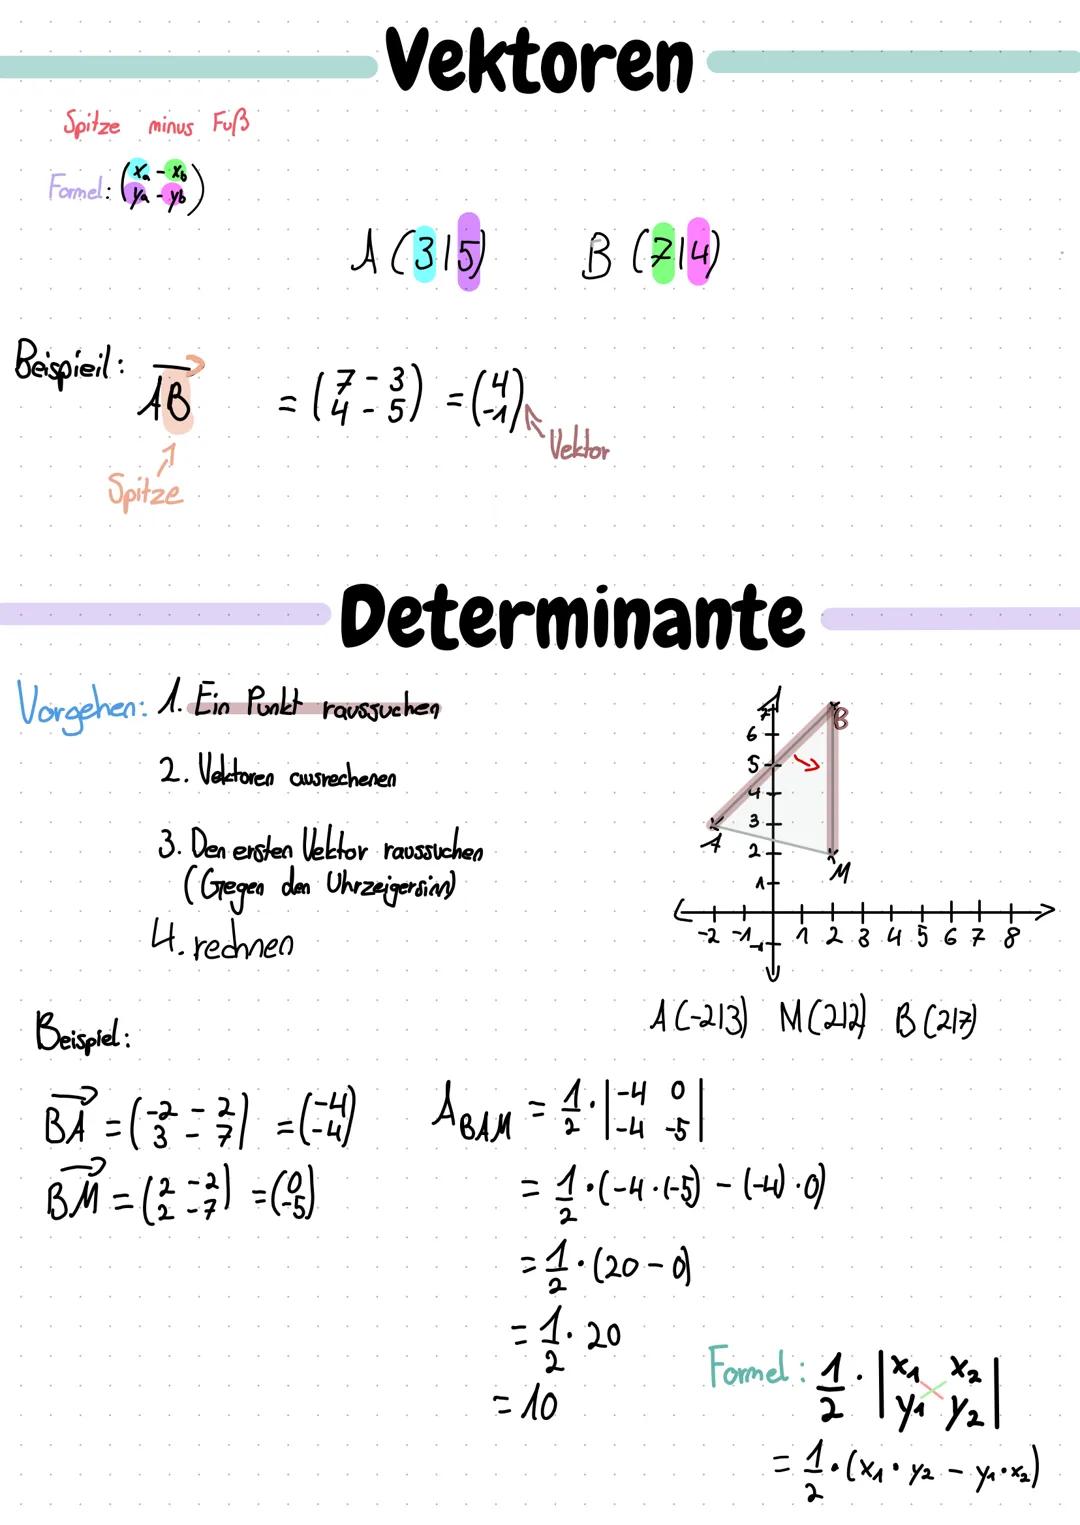 Vektoren
Spitze minus Fuß
Formel: (xₐ - x_b
yₐ - y_b)
A (3|5) B (7|4)
Beispieil: AB⃗ = (7 - 3
4 - 5) = (4
-1)
Vektor
Spitze
Determinante
Vorgehen: 1. Ein Punkt raussuchen
2. Vektoren ausrechenen
3. Den ersten Vektor raussuchen
(Gegen den Uhrzeigersinn)
4. rechnen
7
6
5
4
3
2
1
-1
B
A
M
-2 -1 1 2 3 4 5 6 7 8
A(-2|3) M(2|2) B(2|7)
Beispiel:
BA⃗ = (-2 - 2
3 - 7) = (-4
-4)
BM⃗ = (2 - 2
2 - 7) = (0
-5)
A_BAM = 1/2 · |-4 0
-4 -5|
= 1/2 · (-4 · (-5) - (-4) · 0)
= 1/2 · (20 - 0)
= 1/2 · 20
= 10
Formel: 1/2 · |x₁ x₂
y₁ y₂|
= 1/2 · (x₁ · y₂ - y₁ · x₂)